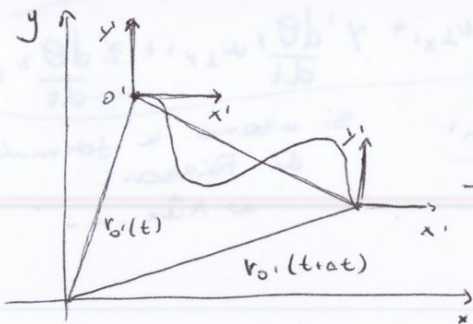 y
y'
O'
x'
y'
x'
r_O'(t)
r_O'(t+Δt)
x